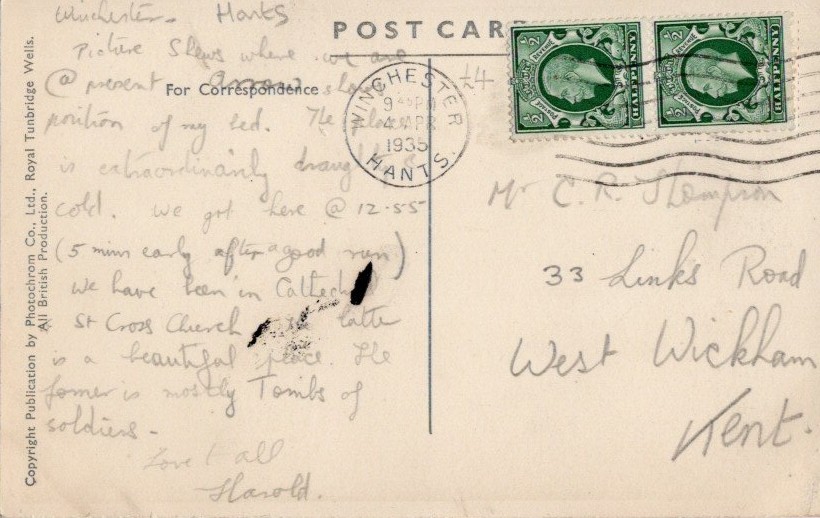 Winchester - Hants
Picture Shews where we are
@ present Arrow shows
position of my bed. The place
is extraordinarily draughty &
cold. We got here @ 12-55
(5 mins early after a good run)
We have been in Cathedral
St Cross Church latter
is a beautiful peace. The
former is mostly Tombs of
soldiers -
Love t all
Harold.
POST CARD
For Correspondence
Copyright Publication by Photochrom Co., Ltd., Royal Tunbridge Wells.
All British Production.
WINCHESTER
9 PM
4 APR
1935
HANTS.
½
POSTAGE
REVENUE
HALFPENNY
½
½
POSTAGE
REVENUE
HALFPENNY
½
Mr C. R. Thompson
33 Links Road
West Wickham
Kent.